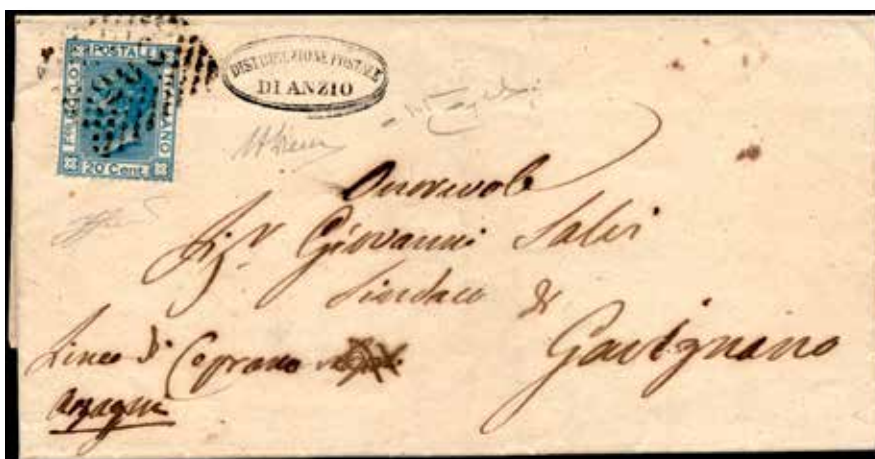 POSTALE
ITALIANO
20 Cent
DISTRIBUZIONE POSTALE
DI ANZIO
Onorevole
Sigr Giovanni Salvi
Sindaco di
Gavignano
Linea di Ceprano
Anagni